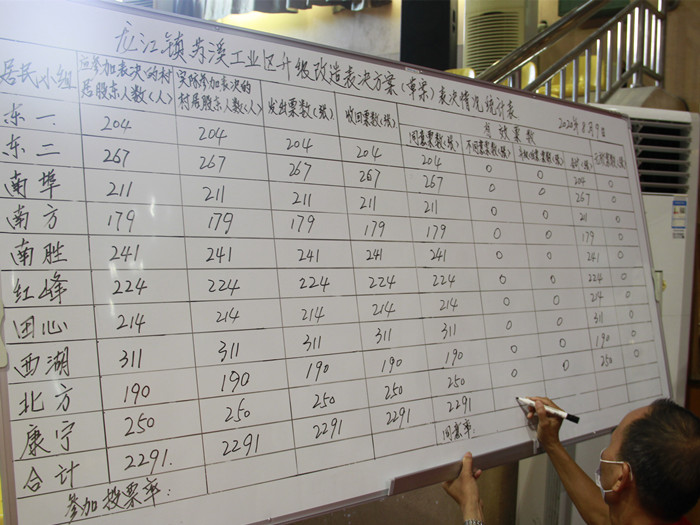 龙江镇苏溪工业区升级改造表决方案(草案)表决情况统计表
2020年8月9日
居民小组 应参加表决的村居股东人数(人) 实际参加表决的村居股东人数(人) 发出票数(张) 收回票数(张) 有效票数
同意票数(张) 不同意票数(张) 合计(张) 无效票数(张)
东一 204 204 204 204 204 0 0 204 0
东二 267 267 267 267 267 0 0 267 0
南埠 211 211 211 211 211 0 0 211 0
南方 179 179 179 179 179 0 0 179 0
南胜 241 241 241 241 241 0 0 241 0
红峰 224 224 224 224 224 0 0 224 0
田心 214 214 214 214 214 0 0 214 0
西湖 311 311 311 311 311 0 0 311 0
北方 190 190 190 190 190 0 0 190 0
康宁 250 250 250 250 250 0 0 250 0
合计 2291. 2291 2291 2291 2291
参加投票率: 同意率: